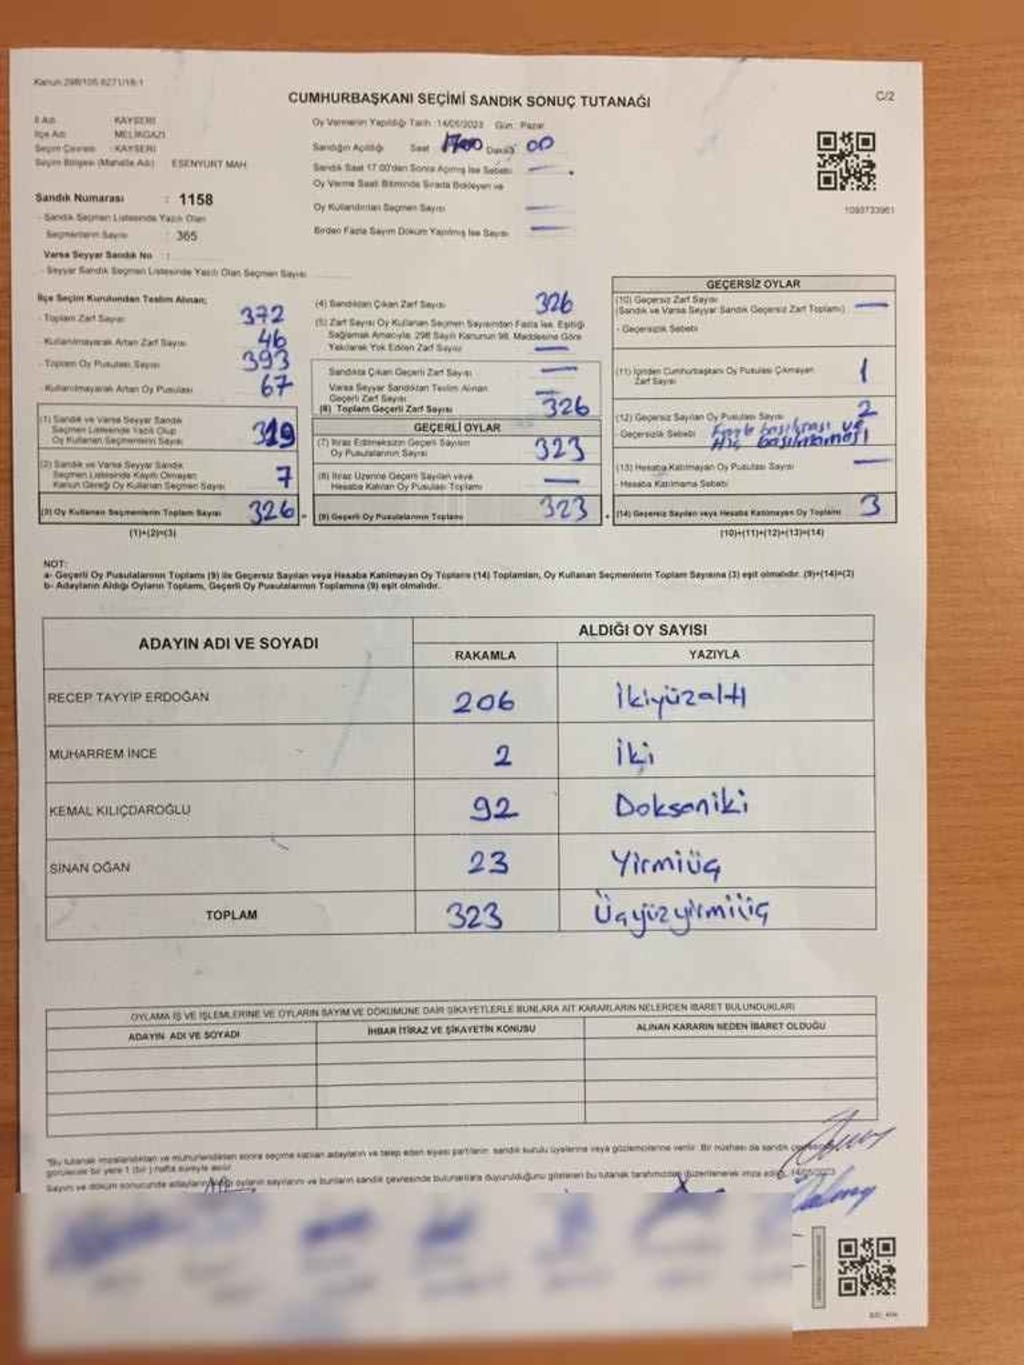 Kanun 298/105 6271/18-1
CUMHURBAŞKANI SEÇİMİ SANDIK SONUÇ TUTANAĞI
C/2
İl Adı KAYSERİ
İlçe Adı MELİKGAZİ
Seçim Çevresi : KAYSERİ
Seçim Bölgesi (Mahalle Adı) ESENYURT MAH.
Sandık Numarası : 1158
- Sandık Seçmen Listesinde Yazılı Olan
Seçmenlerin Sayısı : 365
Varsa Seyyar Sandık No :
- Seyyar Sandık Seçmen Listesinde Yazılı Olan Seçmen Sayısı
Oy Vermenin Yapıldığı Tarih :14/05/2023 Gün : Pazar
Sandığın Açıldığı Saat 1700 Dakika 00
Sandık Saat 17.00'den Sonra Açılmış İse Sebebi —
Oy Verme Saati Bitiminde Sırada Bekleyen ve
Oy Kullandırılan Seçmen Sayısı —
Birden Fazla Sayım Döküm Yapılmış İse Sayısı —
1093733961
İlçe Seçim Kurulundan Teslim Alınan;
- Toplam Zarf Sayısı 372
- Kullanılmayarak Artan Zarf Sayısı 46
- Toplam Oy Pusulası Sayısı 393
- Kullanılmayarak Artan Oy Pusulası 67
(1) Sandık ve Varsa Seyyar Sandık
Seçmen Listesinde Yazılı Olup
Oy Kullanan Seçmenlerin Sayısı 319
(2) Sandık ve Varsa Seyyar Sandık
Seçmen Listesinde Kayıtlı Olmayan
Kanun Gereği Oy Kullanan Seçmen Sayısı 7
(3) Oy Kullanan Seçmenlerin Toplam Sayısı 326
(1)+(2)=(3)
(4) Sandıktan Çıkan Zarf Sayısı 326
(5) Zarf Sayısı Oy Kullanan Seçmen Sayısından Fazla İse, Eşitliği
Sağlamak Amacıyla, 298 Sayılı Kanunun 98. Maddesine Göre
Yakılarak Yok Edilen Zarf Sayısı —
Sandıkta Çıkan Geçerli Zarf Sayısı —
Varsa Seyyar Sandıktan Teslim Alınan
Geçerli Zarf Sayısı —
(6) Toplam Geçerli Zarf Sayısı 326
GEÇERLİ OYLAR
(7) İtiraz Edilmeksizin Geçerli Sayılan
Oy Pusulalarının Sayısı 323
(8) İtiraz Üzerine Geçerli Sayılan veya
Hesaba Katılan Oy Pusulası Toplamı —
(9) Geçerli Oy Pusulalarının Toplamı 323
GEÇERSİZ OYLAR
(10) Geçersiz Zarf Sayısı
(Sandık ve Varsa Seyyar Sandık Geçersiz Zarf Toplamı) —
- Geçersizlik Sebebi
(11) İçinden Cumhurbaşkanı Oy Pusulası Çıkmayan
Zarf Sayısı 1
(12) Geçersiz Sayılan Oy Pusula Sayısı 2
- Geçersizlik Sebebi Fazla basılması ve
Hiç basılmaması
(13) Hesaba Katılmayan Oy Pusulası Sayısı —
- Hesaba Katılmama Sebebi
(14) Geçersiz Sayılan veya Hesaba Katılmayan Oy Toplamı 3
(10)+(11)+(12)+(13)=(14)
NOT:
a- Geçerli Oy Pusulalarının Toplamı (9) ile Geçersiz Sayılan veya Hesaba Katılmayan Oy Toplamı (14) Toplamları, Oy Kullanan Seçmenlerin Toplam Sayısına (3) eşit olmalıdır. (9)+(14)=(3)
b- Adayların Aldığı Oyların Toplamı, Geçerli Oy Pusulalarının Toplamına (9) eşit olmalıdır.
ADAYIN ADI VE SOYADI
ALDIĞI OY SAYISI
RAKAMLA YAZIYLA
RECEP TAYYİP ERDOĞAN 206 İkiyüzaltı
MUHARREM İNCE 2 İki
KEMAL KILIÇDAROĞLU 92 Doksaniki
SİNAN OĞAN 23 Yirmiüç
TOPLAM 323 Üçyüzyirmiüç
OYLAMA İŞ VE İŞLEMLERİNE VE OYLARIN SAYIM VE DÖKÜMÜNE DAİR ŞİKAYETLERLE BUNLARA AİT KARARLARIN NELERDEN İBARET BULUNDUKLARI
ADAYIN ADI VE SOYADI İHBAR İTİRAZ VE ŞİKAYETİN KONUSU ALINAN KARARIN NEDEN İBARET OLDUĞU
"Bu tutanak imzalandıktan ve mühürlendikten sonra seçime katılan adayların ve talep eden siyasi partilerin sandık kurulu üyelerine veya gözlemcilerine verilir. Bir nüshası da sandık
görülecek bir yere 1 (bir) hafta süreyle asılır.
Sayım ve döküm sonucunda adayların aldığı oyların sayılarını ve bunların sandık çevresinde bulunanlara duyurulduğunu gösteren bu tutanak tarafımızdan düzenlenerek imza edildi. 14/05/2023